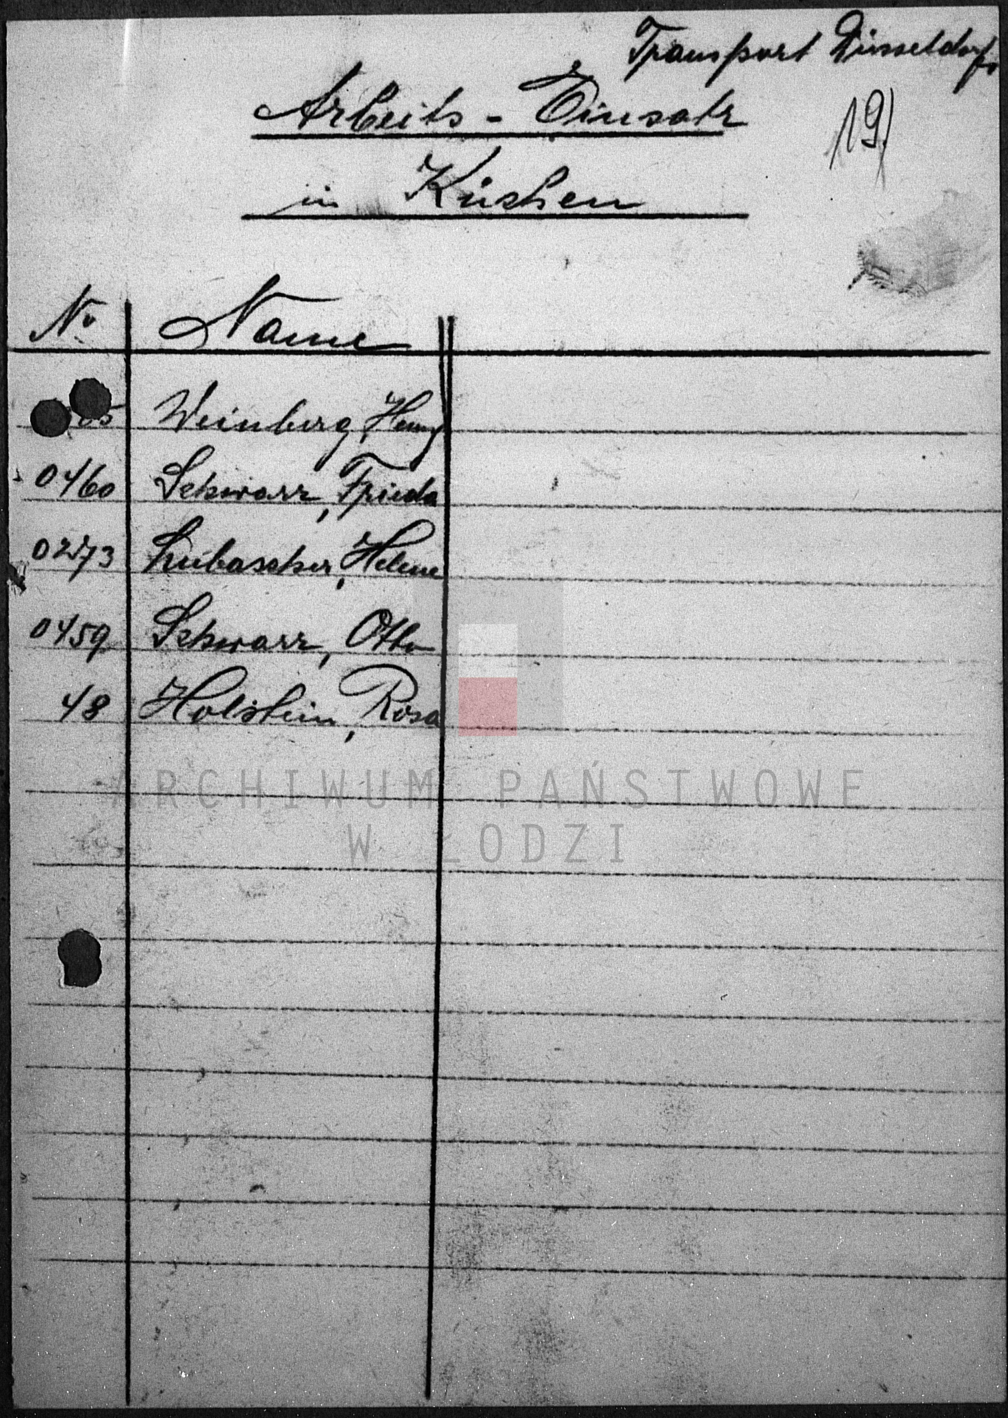 Transport Düsseldorf
19)
Arbeits-Einsatz
in Küchen
No Name
05 Weinberg, Henny
0460 Schwarz, Frieda
0273 Lubascher, Helene
0459 Schwarz, Otto
48 Holstein, Rosa
ARCHIWUM PAŃSTWOWE
W ŁODZI